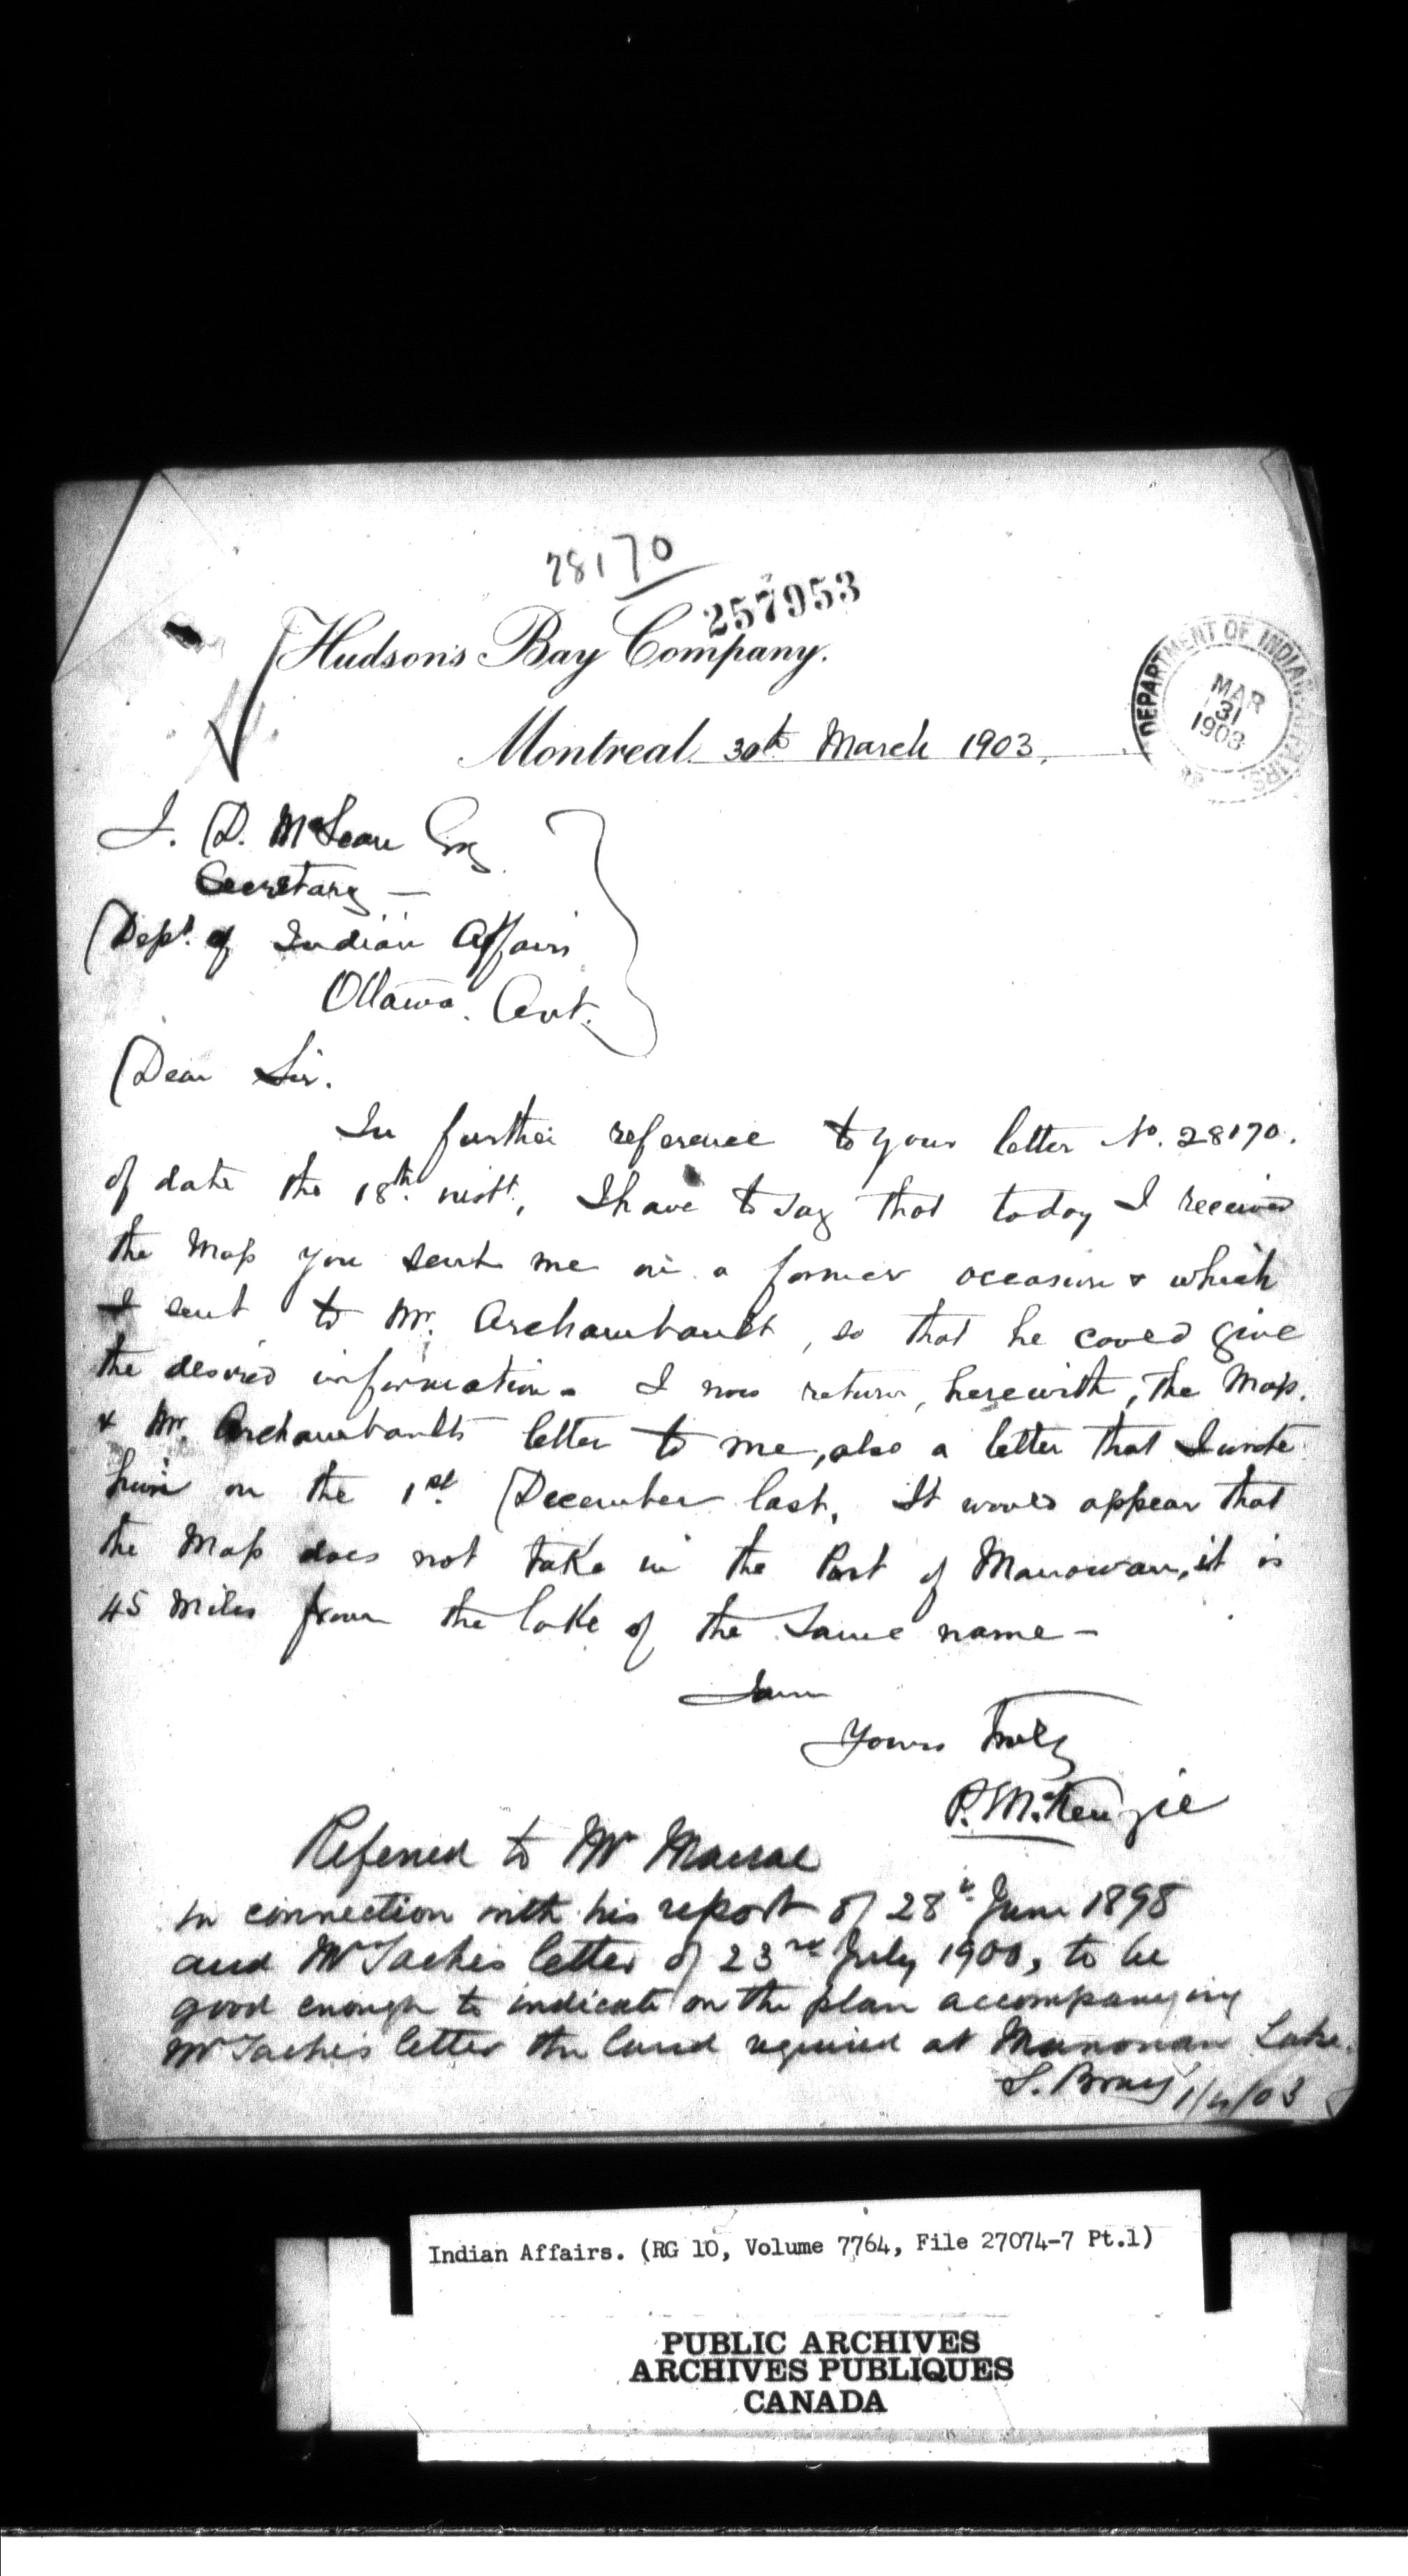 28170
257953
Hudson's Bay Company.
DEPARTMENT OF INDIAN AFFAIRS.
MAR
31
1903
Montreal 30th March 1903.
J. D. McLean Esq
Secretary —
Dept. of Indian Affairs
Ottawa. Ont.
Dear Sir.
In further reference to your letter No. 28170.
of date the 18th instt, I have to say that today I received
the Map you sent me on a former occasion & which
I sent to Mr. Archambault, so that he could give
the desired information. I now return, herewith, the Map.
& Mr. Archambault's letter to me, also a letter that I wrote
him on the 1st December last. It would appear that
the Map does not take in the Post of Manowan, it is
45 Miles from the lake of the same name —
I am
Yours truly
P. McKenzie
Referred to Mr
in connection with his report of 28th June 1898
and Mr Taché's letter of 23rd July 1900, to be
good enough to indicate on the plan accompanying
Mr Taché's letter the land required at Manowan Lake.
S. Bray 1/4/03
Indian Affairs. (RG 10, Volume 7764, File 27074-7 Pt.1)
PUBLIC ARCHIVES
ARCHIVES PUBLIQUES
CANADA